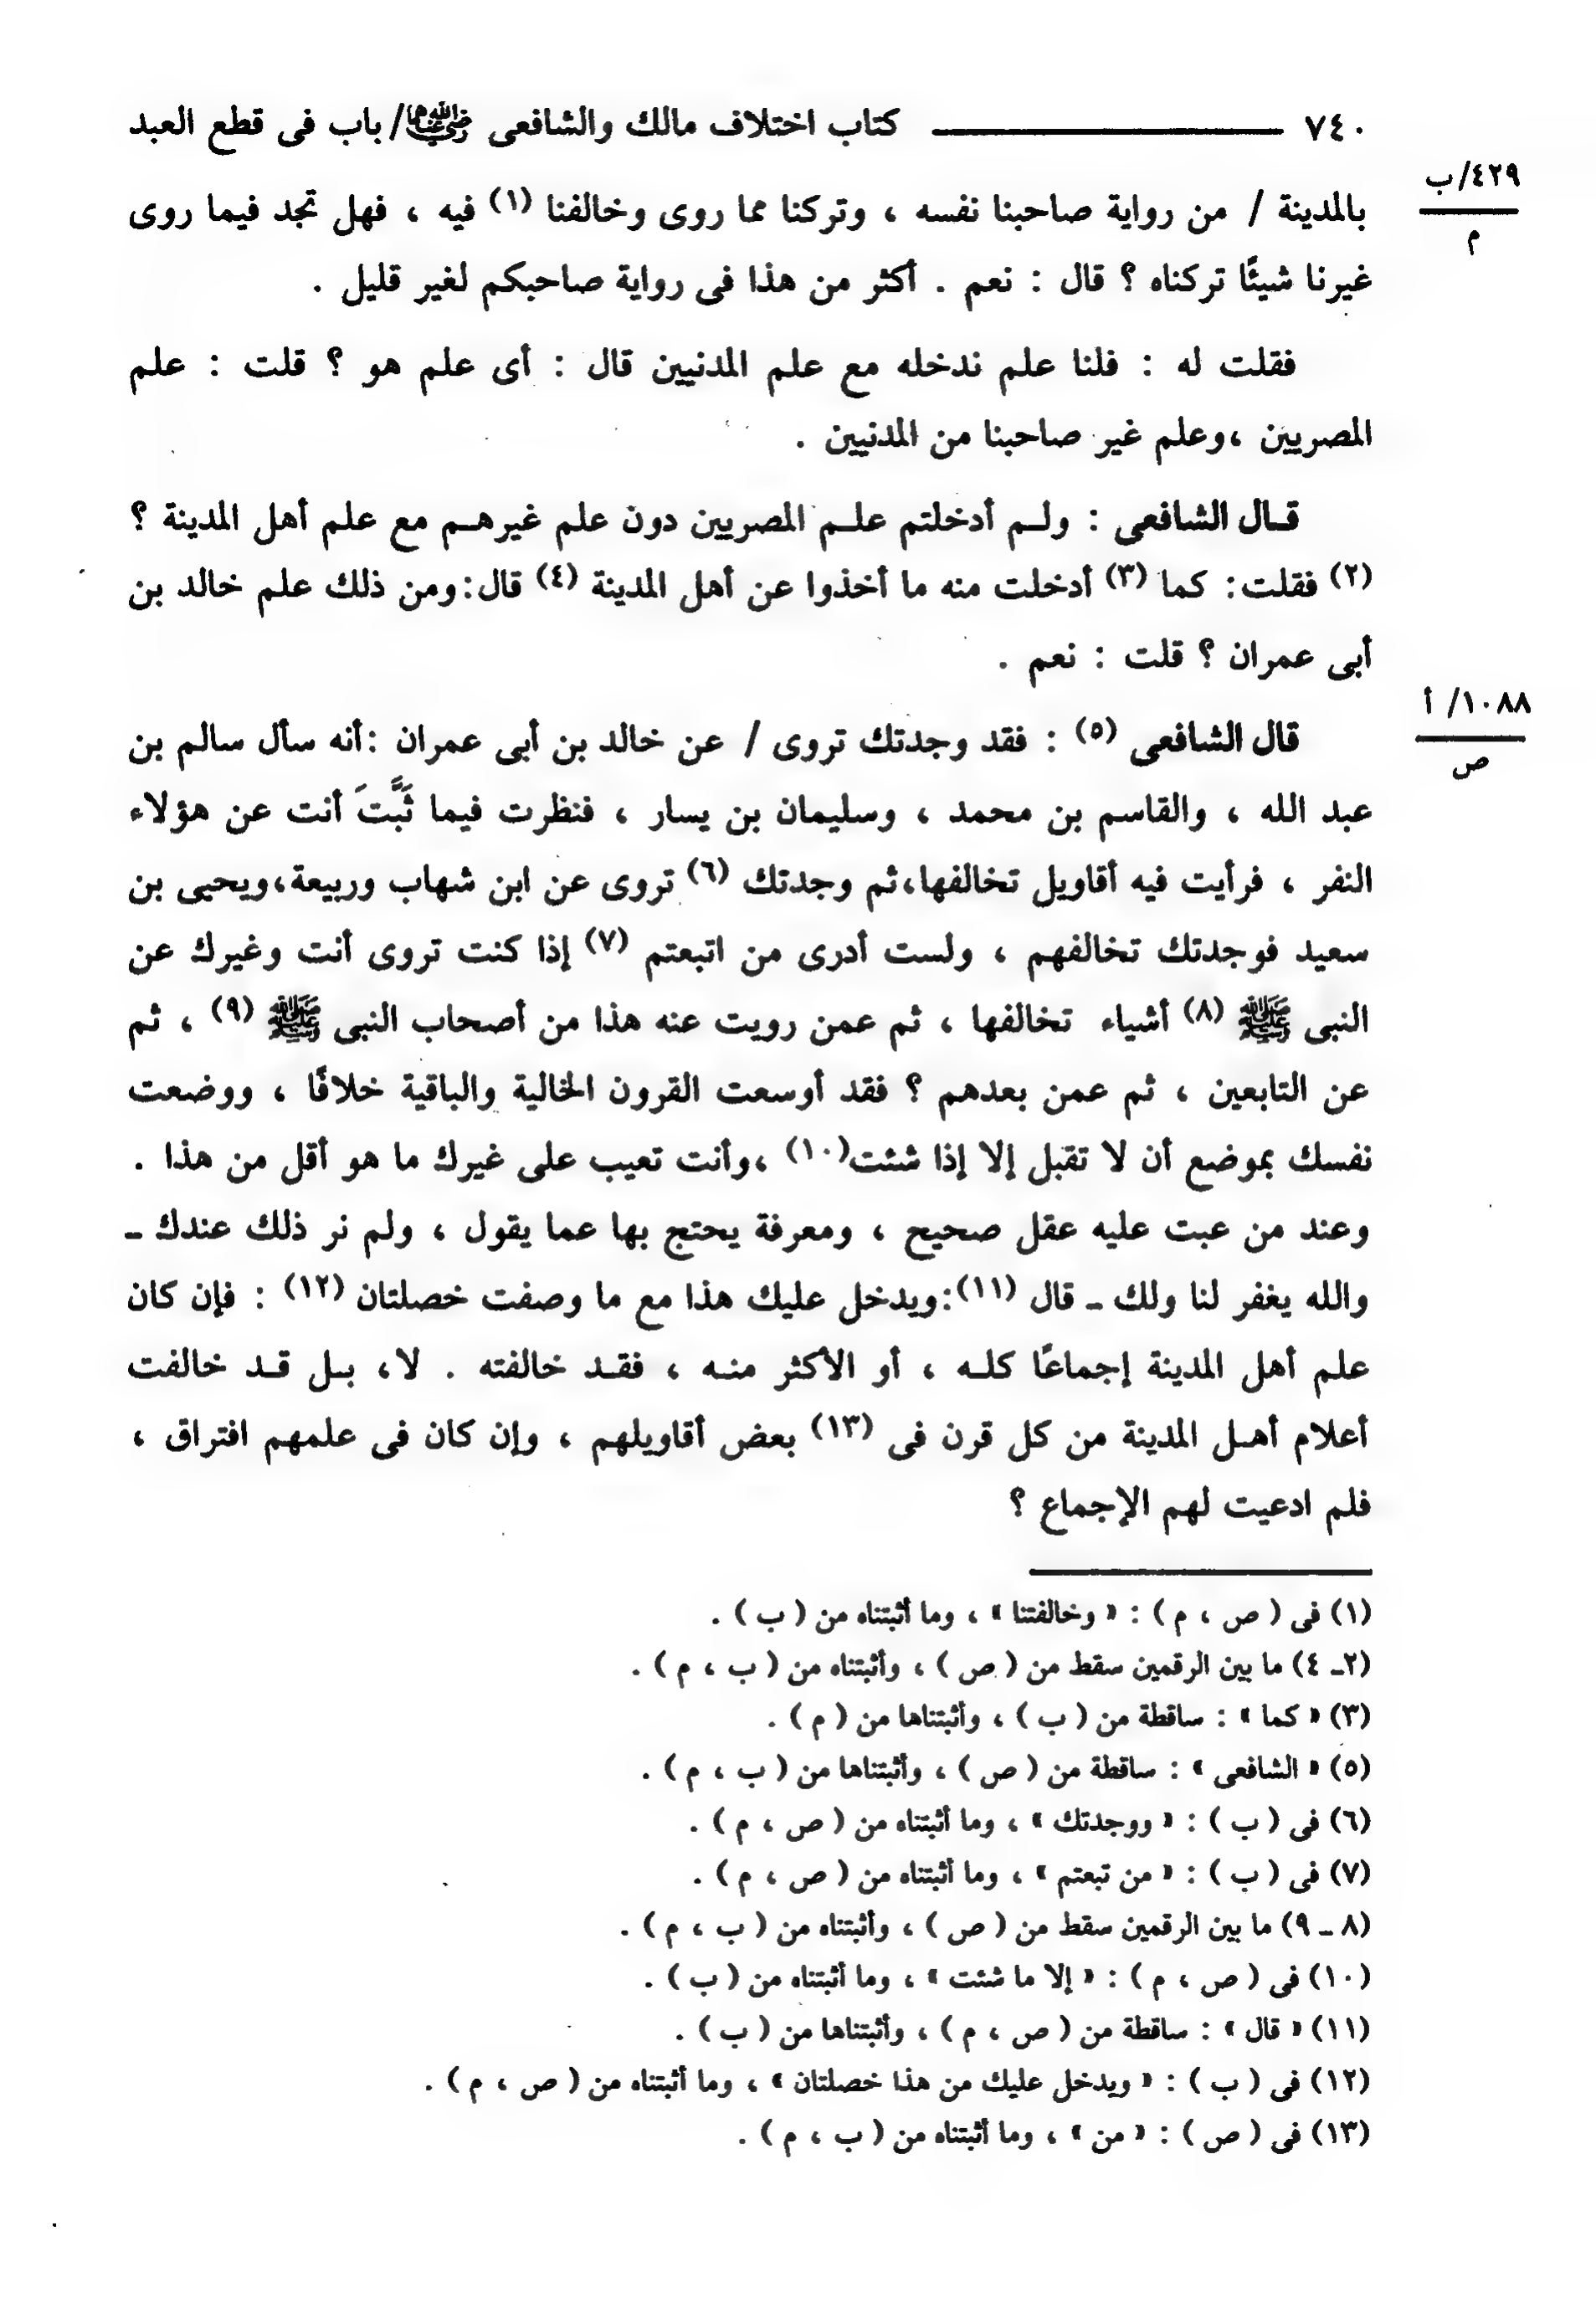 ٧٤٠ ــــــــــــ كتاب اختلاف مالك والشافعى رضي الله عنهما/ باب فى قطع العبد
٤٢٩/ب
م
بالمدينة / من رواية صاحبنا نفسه ، وتركنا مما روى وخالفنا (١) فيه ، فهل تجد فيما روى
غيرنا شيئًا تركناه ؟ قال : نعم . أكثر من هذا فى رواية صاحبكم لغير قليل .
فقلت له : فلنا علم ندخله مع علم المدنيين قال : أى علم هو ؟ قلت : علم
المصريين ،وعلم غير صاحبنا من المدنيين .
قـال الشافعى : ولـم أدخلتم علـم المصريين دون علم غيرهـم مع علم أهل المدينة ؟
(٢) فقلت: كما (٣) أدخلت منه ما أخذوا عن أهل المدينة (٤) قال:ومن ذلك علم خالد بن
أبى عمران ؟ قلت : نعم .
١٠٨٨/ أ
ص
قال الشافعى (٥) : فقد وجدتك تروى / عن خالد بن أبى عمران :أنه سأل سالم بن
عبد الله ، والقاسم بن محمد ، وسليمان بن يسار ، فنظرت فيما ثَبَّتَ أنت عن هؤلاء
النفر ، فرأيت فيه أقاويل تخالفها،ثم وجدتك (٦) تروى عن ابن شهاب وربيعة،ويحيى بن
سعيد فوجدتك تخالفهم ، ولست أدرى من اتبعتم (٧) إذا كنت تروى أنت وغيرك عن
النبى ﷺ (٨) أشياء تخالفها ، ثم عمن رويت عنه هذا من أصحاب النبى ﷺ (٩) ، ثم
عن التابعين ، ثم عمن بعدهم ؟ فقد أوسعت القرون الخالية والباقية خلافًا ، ووضعت
نفسك بموضع أن لا تقبل إلا إذا شئت(١٠) ،وأنت تعيب على غيرك ما هو أقل من هذا .
وعند من عبت عليه عقل صحيح ، ومعرفة يحتج بها عما يقول ، ولم نر ذلك عندك ـ
والله يغفر لنا ولك ـ قال (١١):ويدخل عليك هذا مع ما وصفت خصلتان (١٢) : فإن كان
علم أهل المدينة إجماعًا كلـه ، أو الأكثر منـه ، فقـد خالفته . لا، بـل قـد خالفت
أعلام أهـل المدينة من كل قرن فى (١٣) بعض أقاويلهم ، وإن كان فى علمهم افتراق ،
فلم ادعيت لهم الإجماع ؟
(١) فى ( ص ، م ) : « وخالفتنا » ، وما أثبتناه من ( ب ) .
(٢ـ ٤) ما بين الرقمين سقط من ( ص ) ، وأثبتناه من ( ب ، م ) .
(٣) « كما » : ساقطة من ( ب ) ، وأثبتناها من ( م ) .
(٥) « الشافعى » : ساقطة من ( ص ) ، وأثبتناها من ( ب ، م ) .
(٦) فى ( ب ) : « ووجدتك » ، وما أثبتناه من ( ص ، م ) .
(٧) فى ( ب ) : « من تبعتم » ، وما أثبتناه من ( ص ، م ) .
(٨ ـ ٩) ما بين الرقمين سقط من ( ص ) ، وأثبتناه من ( ب ، م ) .
(١٠) فى ( ص ، م ) : « إلا ما شئت » ، وما أثبتناه من ( ب ) .
(١١) « قال » : ساقطة من ( ص ، م ) ، وأثبتناها من ( ب ) .
(١٢) فى ( ب ) : « ويدخل عليك من هذا خصلتان » ، وما أثبتناه من ( ص ، م ) .
(١٣) فى ( ص ) : « من » ، وما أثبتناه من ( ب ، م ) .